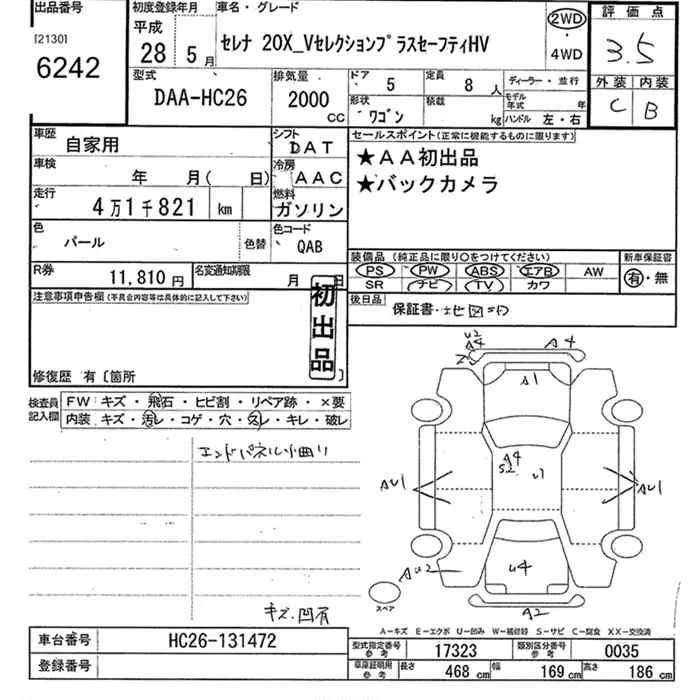 出品番号
[2130]
6242
初度登録年月
平成
28 5月
車名・グレード
セレナ 20X_VセレクションプラスセーフティHV
2WD
・
4WD
評価点
3.5
外装 内装
C B
型式
DAA-HC26
排気量
2000
CC
ドア 5
定員 8 人
形状 ワゴン
積載 kg
ディーラー・並行
モデル年式 年
ハンドル 左・右
車歴 自家用
シフト DAT
車検 年 月( 日)
冷房 AAC
走行 4万1千821 km
燃料 ガソリン
色 パール 色替
色コード QAB
R券 11,810円
名変通知期限 月 日
セールスポイント(正常に機能するものに限ります)
★AA初出品
★バックカメラ
装備品(純正品に限り○をつけてください)
PS PW ABS エアB AW
SR ナビ TV カワ
新車保証書
有・無
後日品 保証書・
注意事項申告欄(不具合内容等は具体的に記入して下さい)
初出品
修復歴 有〔箇所 〕
検査員記入欄
FW キズ・飛石・ヒビ割・リペア跡・×要
内装 キズ・汚レ・コゲ・穴・スレ・キレ・破レ
エンドパネル小曲り
キズ・凹有
U2
A4
A4
S1
A4
S2
U1
AU1
AU1
U4
AU2
A2
スペア
A-キズ E-エクボ U-凹み W-補修跡 S-サビ C-腐食 XX-交換済
車台番号 HC26-131472
登録番号
型式指定番号 参考 17323
類別区分番号 参考 0035
車庫証明用 参考 長さ 468 cm 幅 169 cm 高さ 186 cm